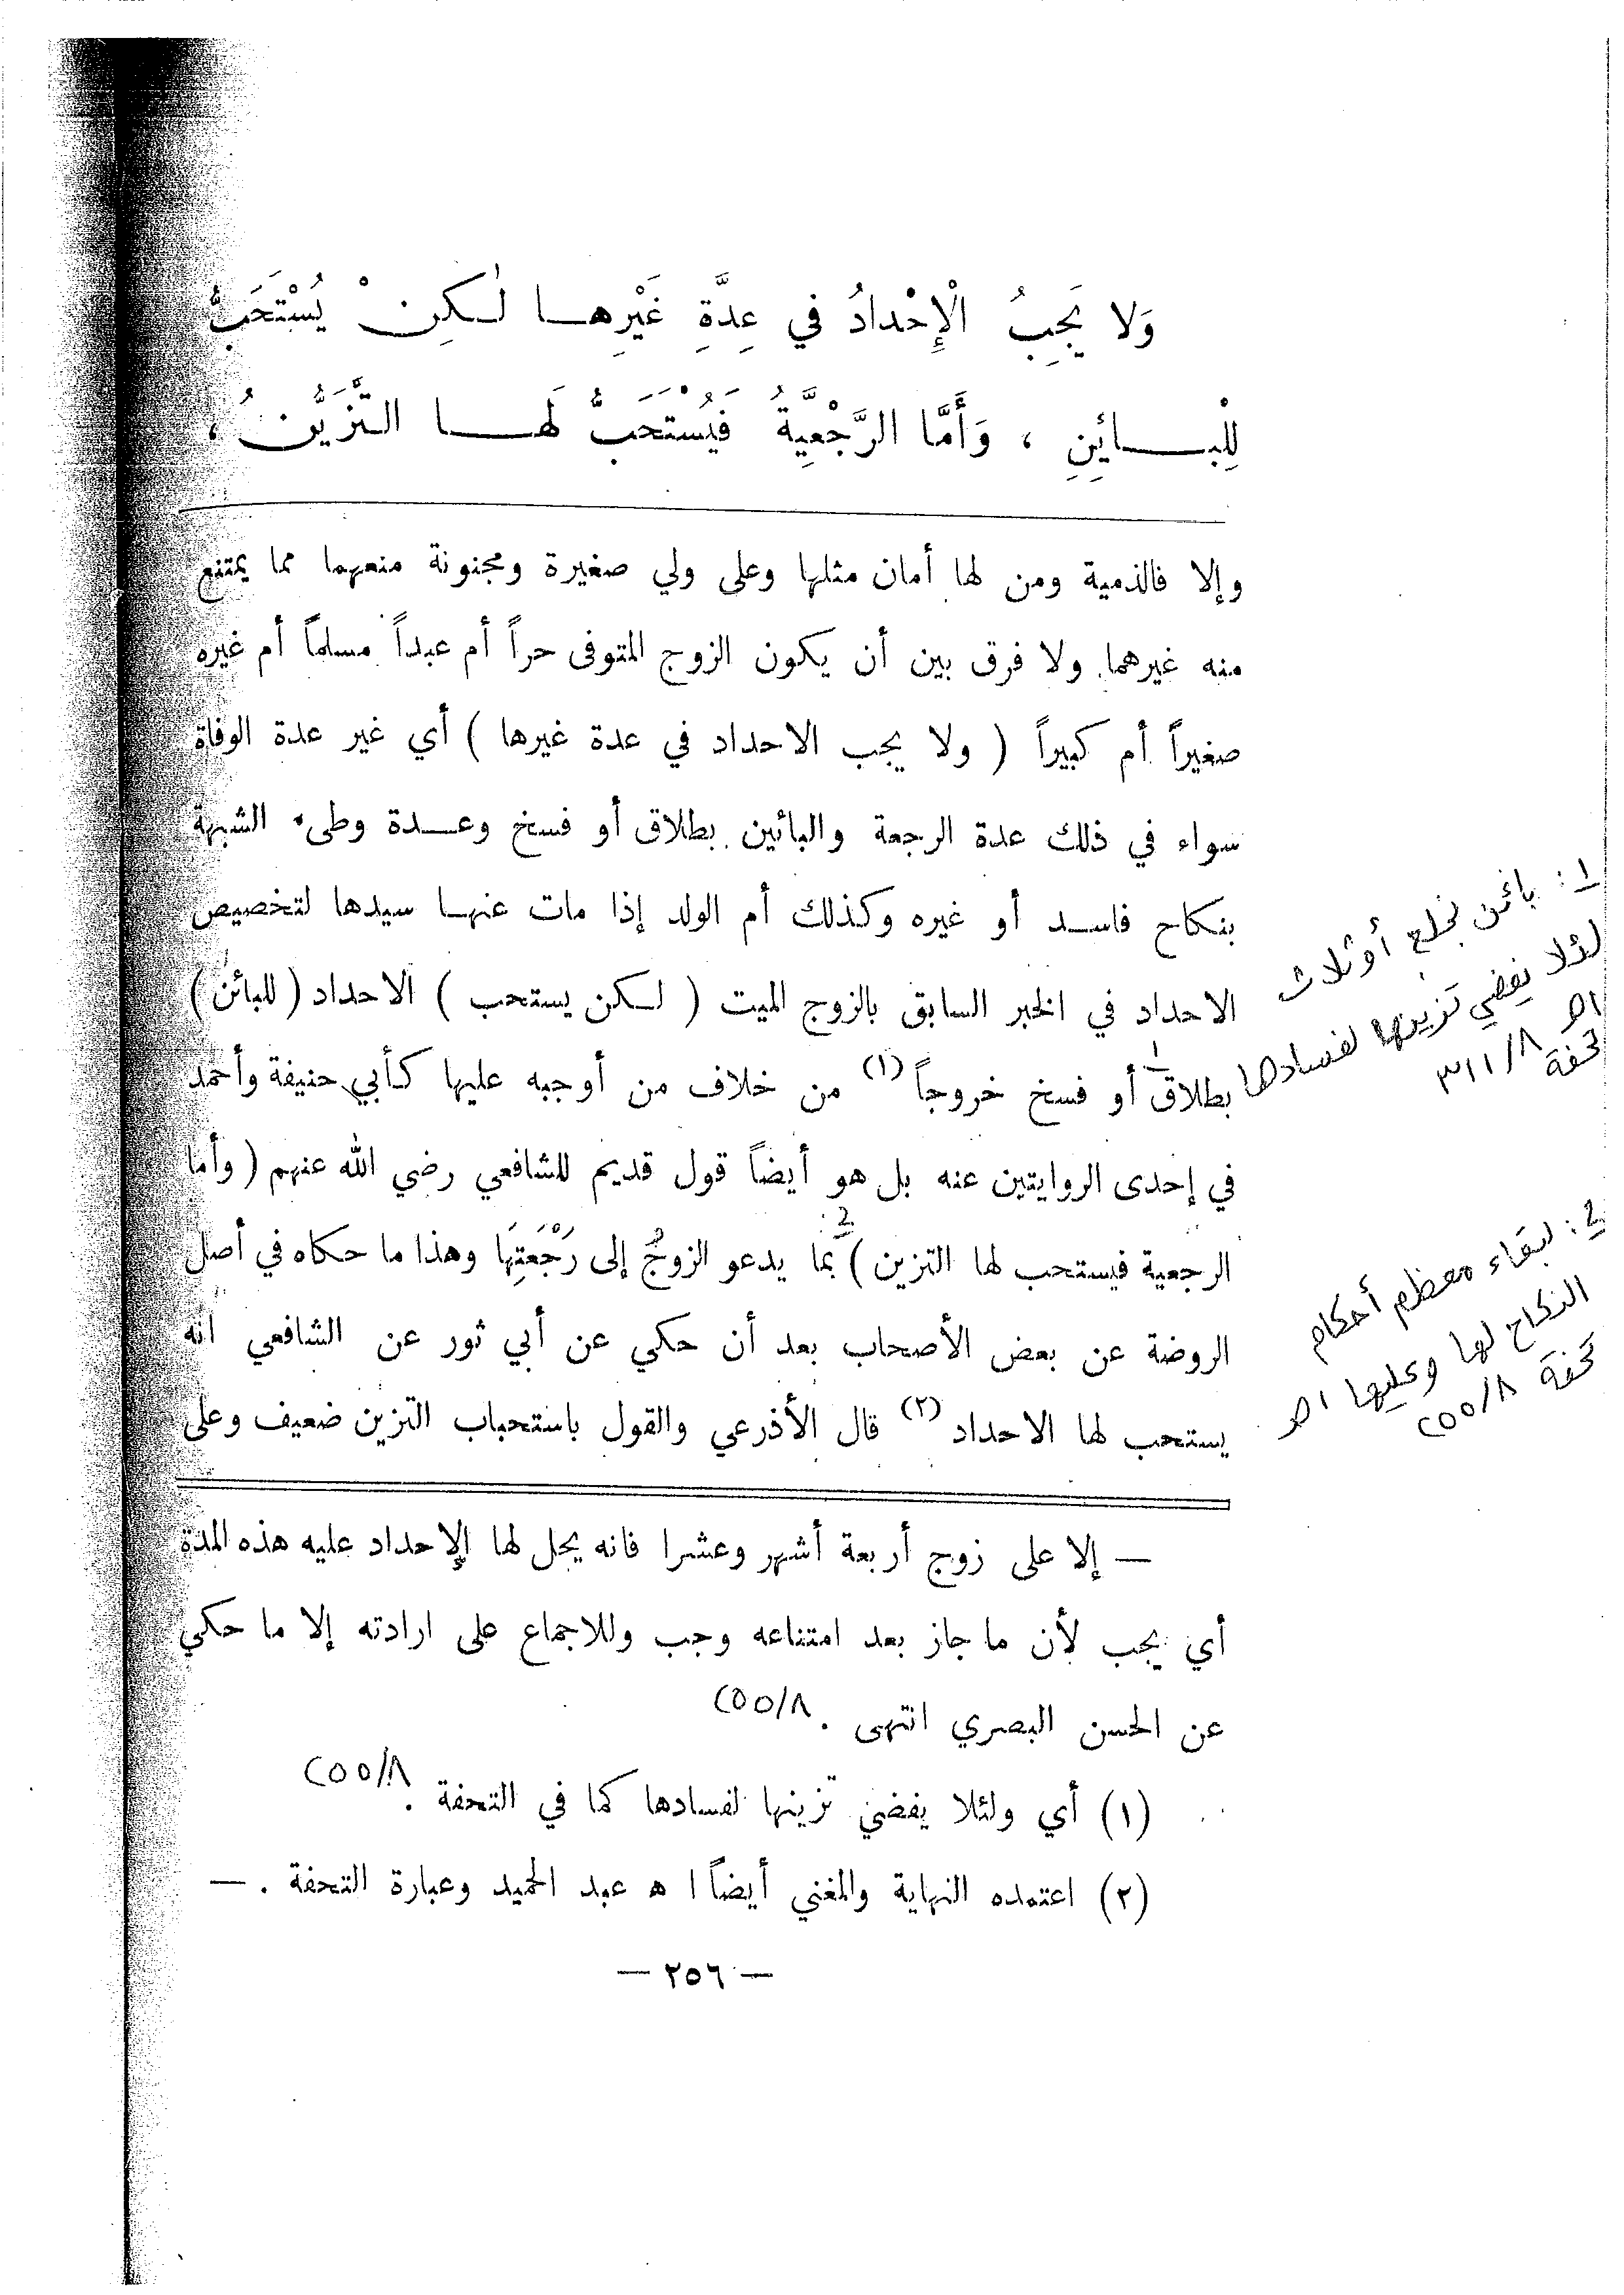 وَلا يَجِبُ الْإِحْدادُ في عِدَّةِ غَيْرِها لٰكِنْ يُسْتَحَبُّ
لِلْبائِنِ ، وَأَمَّا الرَّجْعِيَّةُ فَيُسْتَحَبُّ لَها التَّزَيُّنُ ،
وإلا فالذمية ومن لها أمان مثلها وعلى ولي صغيرة ومجنونة منعهما مما يمتنع
منه غيرهما ولا فرق بين أن يكون الزوج المتوفى حراً أم عبداً مسلماً أم غيره
صغيراً أم كبيراً ( ولا يجب الاحداد في عدة غيرها ) أي غير عدة الوفاة
سواء في ذلك عدة الرجعة والبائين بطلاق أو فسخ وعدة وطىء الشبهة
بنكاح فاسد أو غيره وكذلك أم الولد إذا مات عنها سيدها لتخصيص
الاحداد في الخبر السابق بالزوج الميت ( لكن يستحب ) الاحداد ( للبائن )
بطلاق أو فسخ خروجاً (١) من خلاف من أوجبه عليها كأبي حنيفة وأحمد
في إحدى الروايتين عنه بل هو أيضاً قول قديم للشافعي رضي الله عنهم ( وأما
الرجعية فيستحب لها التزين ) بما يدعو الزوجُ إلى رَجْعَتِهَا وهذا ما حكاه في أصل
الروضة عن بعض الأصحاب بعد أن حكي عن أبي ثور عن الشافعي انه
يستحب لها الاحداد (٢) قال الأذرعي والقول باستحباب التزين ضعيف وعلى
— إلا على زوج أربعة أشهر وعشرا فانه يحل لها الإحداد عليه هذه المدة
أي يجب لأن ما جاز بعد امتناعه وجب وللاجماع على ارادته إلا ما حكي
عن الحسن البصري انتهى . ٢٥٥/٨
(١) أي ولئلا يفضي تزينها لفسادها كما في التحفة . ٢٥٥/٨
(٢) اعتمده النهاية والمغني أيضاً ا ه عبد الحميد وعبارة التحفة . —
— ٢٥٦ —
1: بائن بخلع أو ثلاث
لئلا يفضي تزينها لفسادها
اهـ
تحفة ٣١١/٨
2: لبقاء معظم أحكام
النكاح لها وعليها اهـ
تحفة ٢٥٥/٨